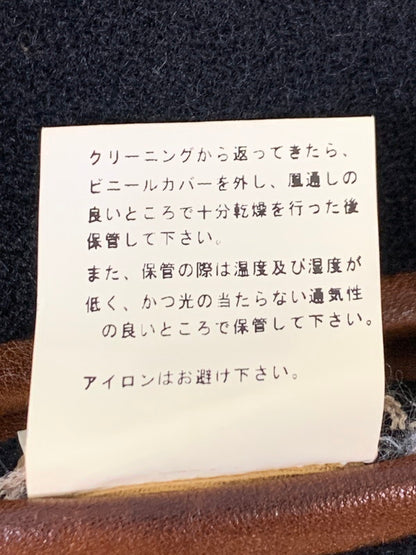 クリーニングから返ってきたら、
ビニールカバーを外し、風通しの
良いところで十分乾燥を行った後
保管して下さい。
また、保管の際は温度及び湿度が
低く、かつ光の当たらない通気性
の良いところで保管して下さい。
アイロンはお避け下さい。